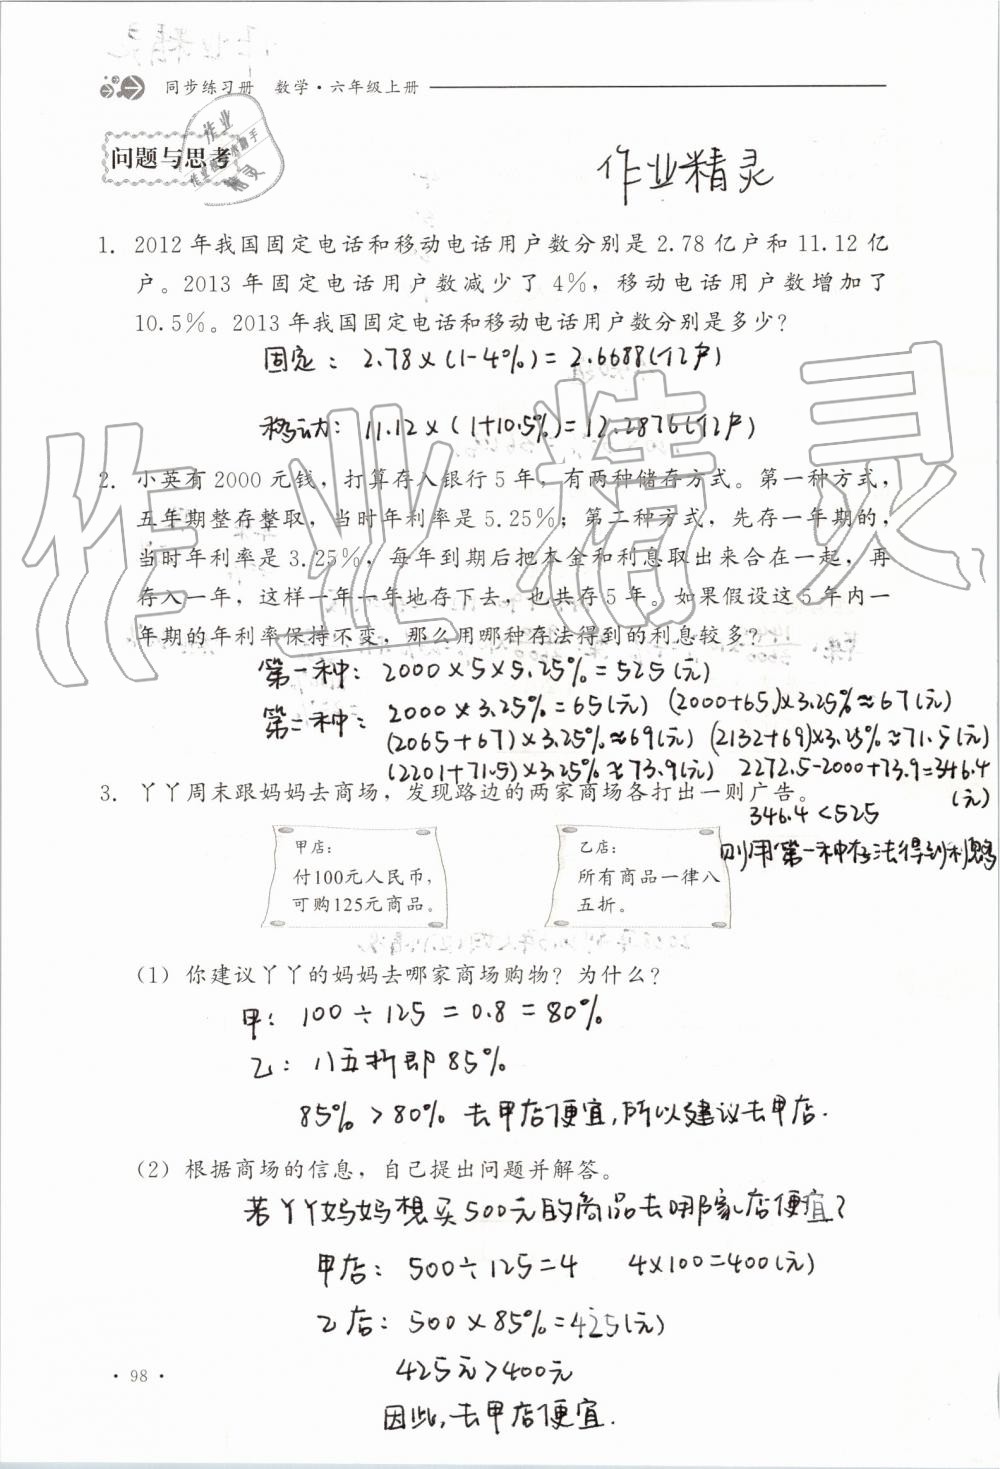 作业精灵
同步练习册 数学·六年级上册
问题与思考
作业精灵
1. 2012年我国固定电话和移动电话用户数分别是2.78亿户和11.12亿
户。2013年固定电话用户数减少了4%，移动电话用户数增加了
10.5%。2013年我国固定电话和移动电话用户数分别是多少？
固定：2.78×(1-4%)=2.6688(亿户)
移动：11.12×(1+10.5%)=12.2876(亿户)
2. 小英有2000元钱，打算存入银行5年，有两种储存方式。第一种方式，
五年期整存整取，当时年利率是5.25%；第二种方式，先存一年期的，
当时年利率是3.25%，每年到期后把本金和利息取出来合在一起，再
存入一年，这样一年一年地存下去，也共存5年。如果假设这5年内一
年期的年利率保持不变，那么用哪种存法得到的利息较多？
第一种：2000×5×5.25%=525(元)
第二种：2000×3.25%=65(元) (2000+65)×3.25%≈67(元)
(2065+67)×3.25%≈69(元) (2132+69)×3.25%≈71.5(元)
(2201+71.5)×3.25%≈73.9(元) 2272.5-2000+73.9=346.4
(元)
3. 丫丫周末跟妈妈去商场，发现路边的两家商场各打出一则广告。
346.4<525
则用第一种存法得到利息多
甲店：
付100元人民币，
可购125元商品。
乙店：
所有商品一律八
五折。
（1）你建议丫丫的妈妈去哪家商场购物？为什么？
甲：100÷125=0.8=80%
乙：八五折即85%
85%>80% 去甲店便宜，所以建议去甲店.
（2）根据商场的信息，自己提出问题并解答。
若丫丫妈妈想买500元的商品去哪家店便宜？
甲店：500÷125=4 4×100=400(元)
乙店：500×85%=425(元)
425元>400元
因此，去甲店便宜.
·98·
作业精灵